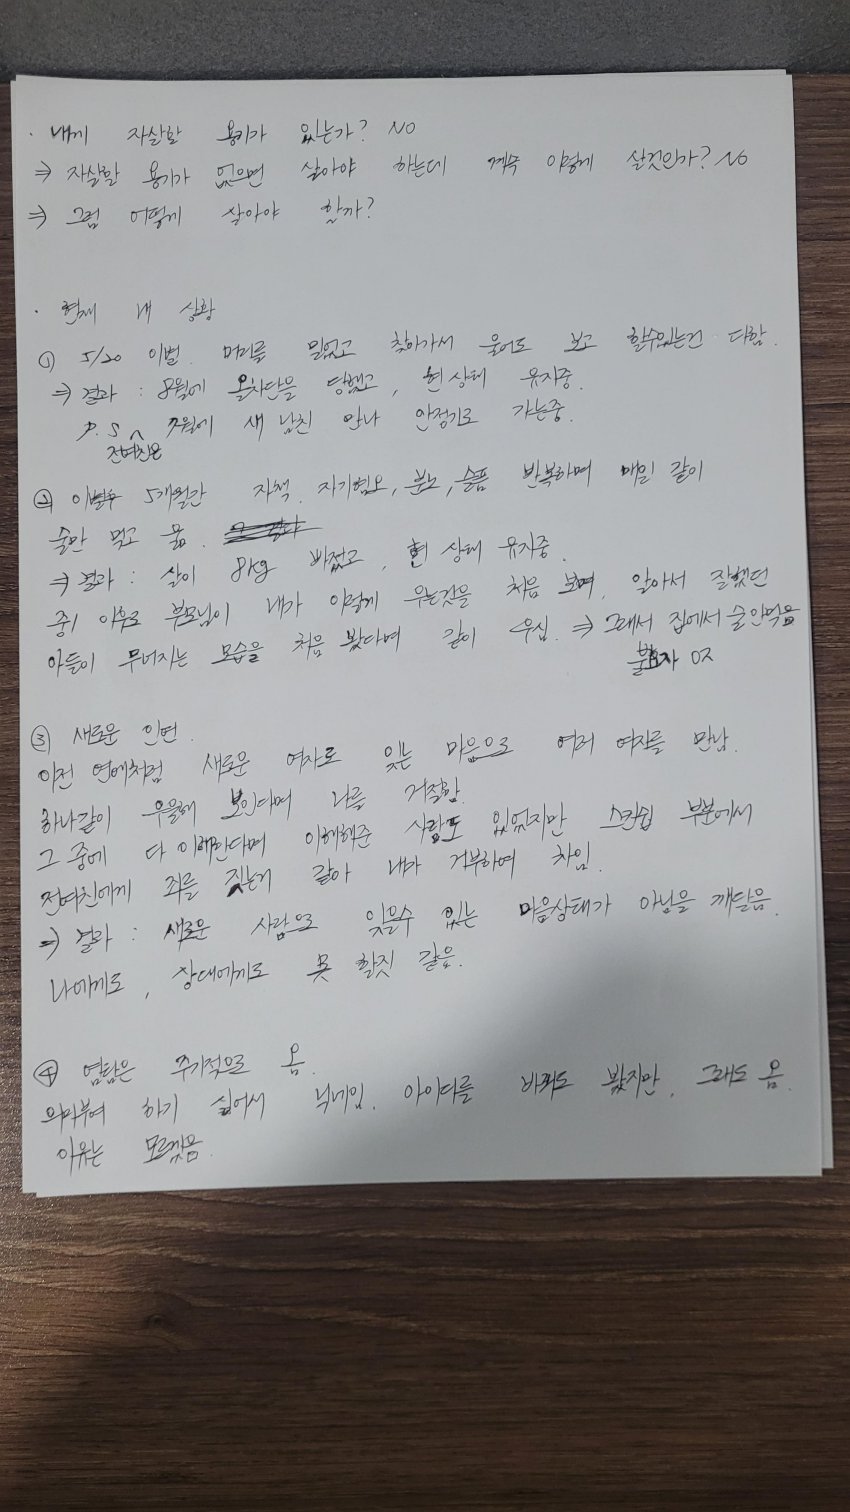 · 내게 자살할 용기가 있는가? NO
⇒ 자살할 용기가 없으면 살아야 하는데 계속 이렇게 살것인가? NO
⇒ 그럼 어떻게 살아야 할까?
· 현재 내 상황
① 5/20 이별. 머리를 밀었고 찾아가서 울어도 보고 할수있는건 다함.
⇒ 결과 : 8월에 올차단을 당했고, 현 상태 유지중.
P.S 전여친은 7월에 새 남친 만나 안정기로 가는중.
② 이별후 5개월간 자책, 자기혐오, 분노, 슬픔 반복하며 매일 같이
술만 먹고 욺.
⇒ 결과 : 살이 8kg 빠졌고, 현 상태 유지중.
중1 이후로 부모님이 내가 이렇게 우는것을 처음 보며, 알아서 잘했던
아들이 무너지는 모습을 처음 봤다며 같이 우심. ⇒ 그래서 집에서 술안먹음
불효자 OZ
③ 새로운 인연.
이전 연애처럼 새로운 여자로 잊는 마음으로 여러 여자를 만남.
하나같이 우울해 보인다며 나를 거절함.
그 중에 다 이해한다며 이해해준 사람도 있었지만 스킨쉽 부분에서
전여친에게 죄를 짓는거 같아 내가 거부하여 차임.
⇒ 결과 : 새로운 사람으로 잊을수 있는 마음상태가 아님을 깨달음.
나에게도, 상대에게도 못 할짓 같음.
④ 염탐은 주기적으로 옴.
의미부여 하기 싫어서 닉네임, 아이디를 바꿔도 봤지만, 그래도 옴.
이유는 모르겠음.